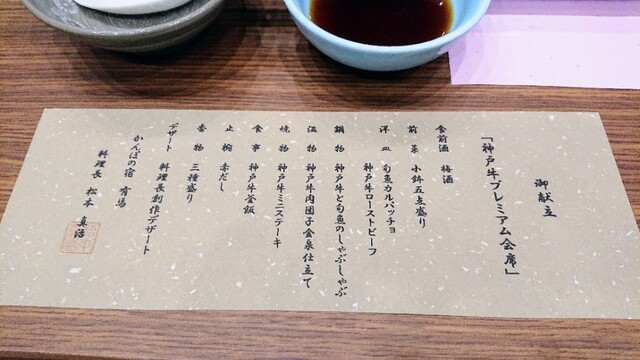 御献立
「神戸牛プレミアム会席」
食前酒 梅酒
前菜 小鉢五点盛り
洋皿 旬魚カルパッチョ
神戸牛ローストビーフ
鍋物 神戸牛と旬魚のしゃぶしゃぶ
温物 神戸牛肉団子金泉仕立て
焼物 神戸牛ミニステーキ
食事 神戸牛釜飯
止椀 赤だし
香物 三種盛り
デザート 料理長創作デザート
かんぽの宿 有馬
料理長 松本 真治